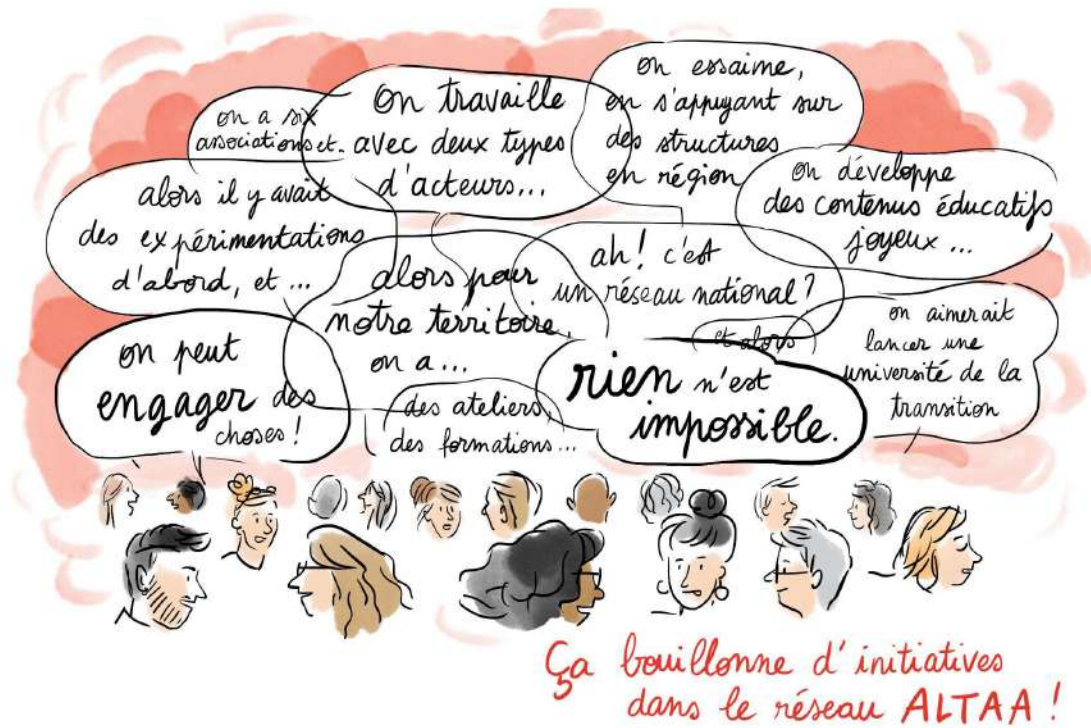 on a six
associations et...
on travaille
avec deux types
d'acteurs...
on essaime,
en s'appuyant sur
des structures
en région
alors il y avait
des expérimentations
d'abord, et ...
on développe
des contenus éducatifs
joyeux ...
alors pour
notre territoire,
on a ...
ah! c'est
un réseau national?
et alors
on aimerait
lancer une
université de la
transition
on peut
engager des
choses!
des ateliers,
des formations...
rien n'est
impossible.
Ça bouillonne d'initiatives
dans le réseau ALTAA!